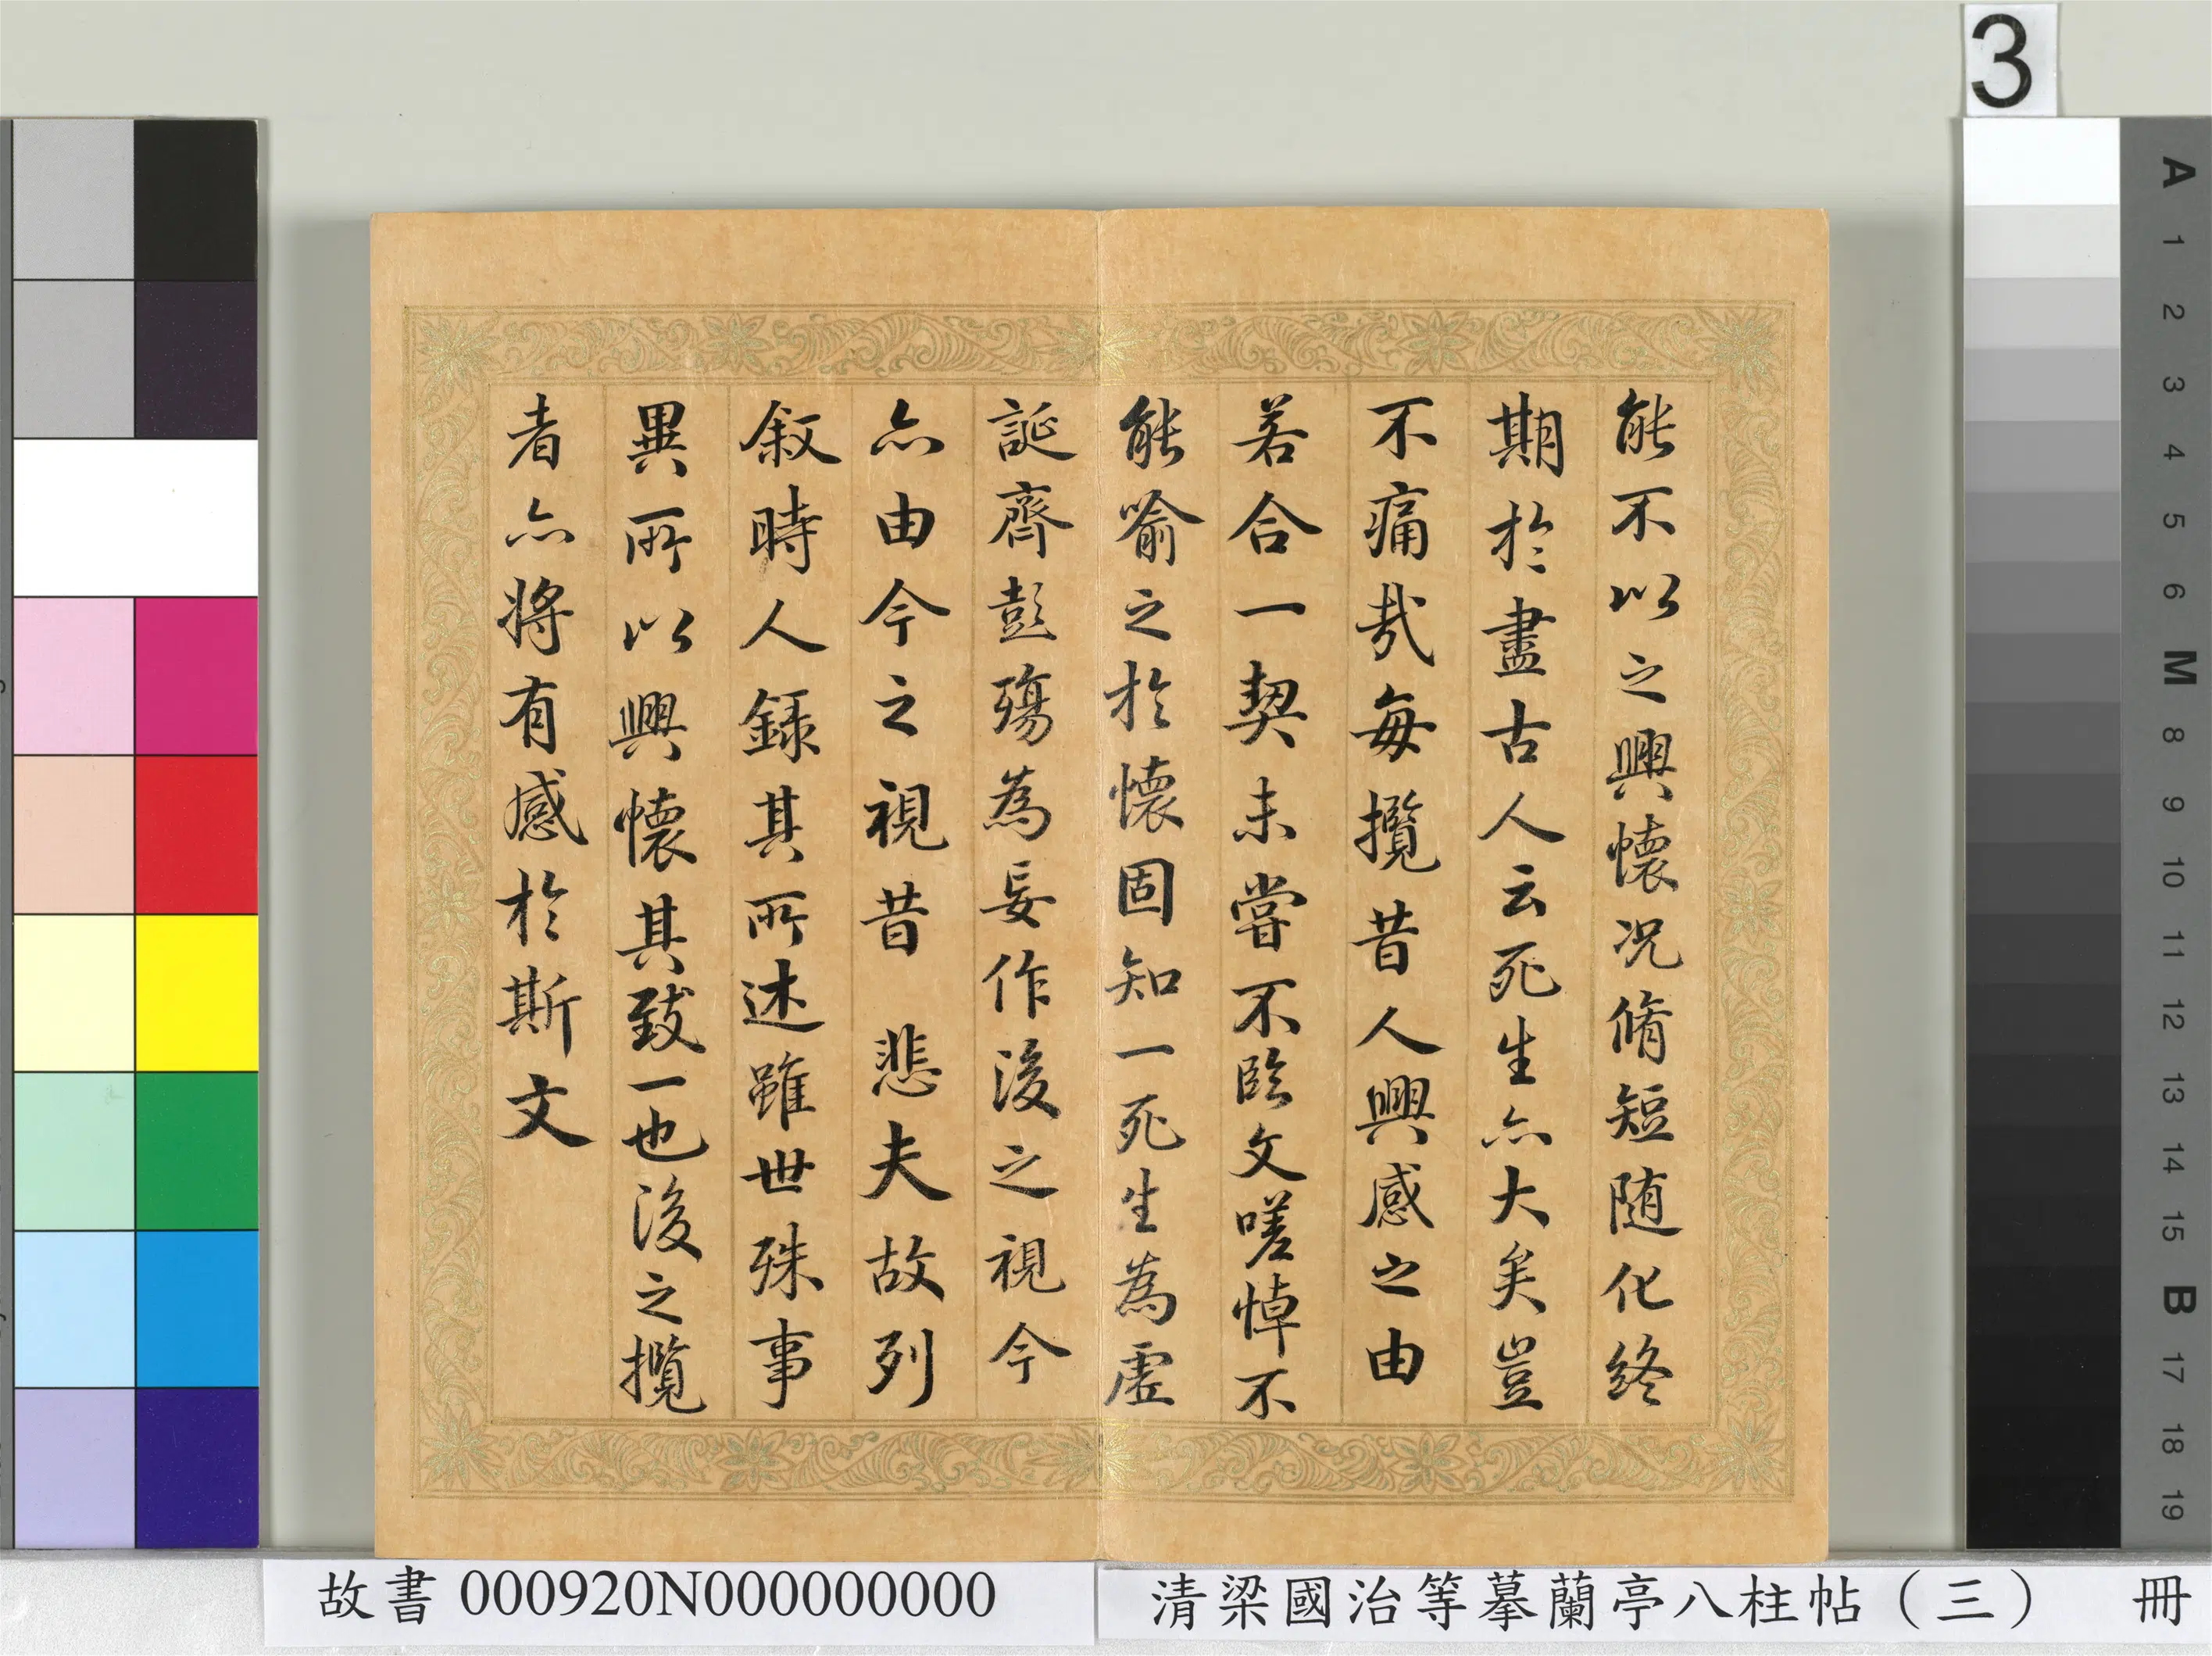 能不以之興懷况脩短随化終
期於盡古人云死生亦大矣豈
不痛哉每攬昔人興感之由
若合一契未甞不臨文嗟悼不
能喻之於懷固知一死生為虛
誕齊彭殤為妄作後之視今
亦由今之視昔 悲夫故列
敘時人録其所述雖世殊事
異所以興懷其致一也後之攬
者亦將有感於斯文
故書 000920N000000000
清梁國治等摹蘭亭八柱帖（三） 冊
3
A
1
2
3
4
5
6
M
8
9
10
11
12
13
14
15
B
17
18
19